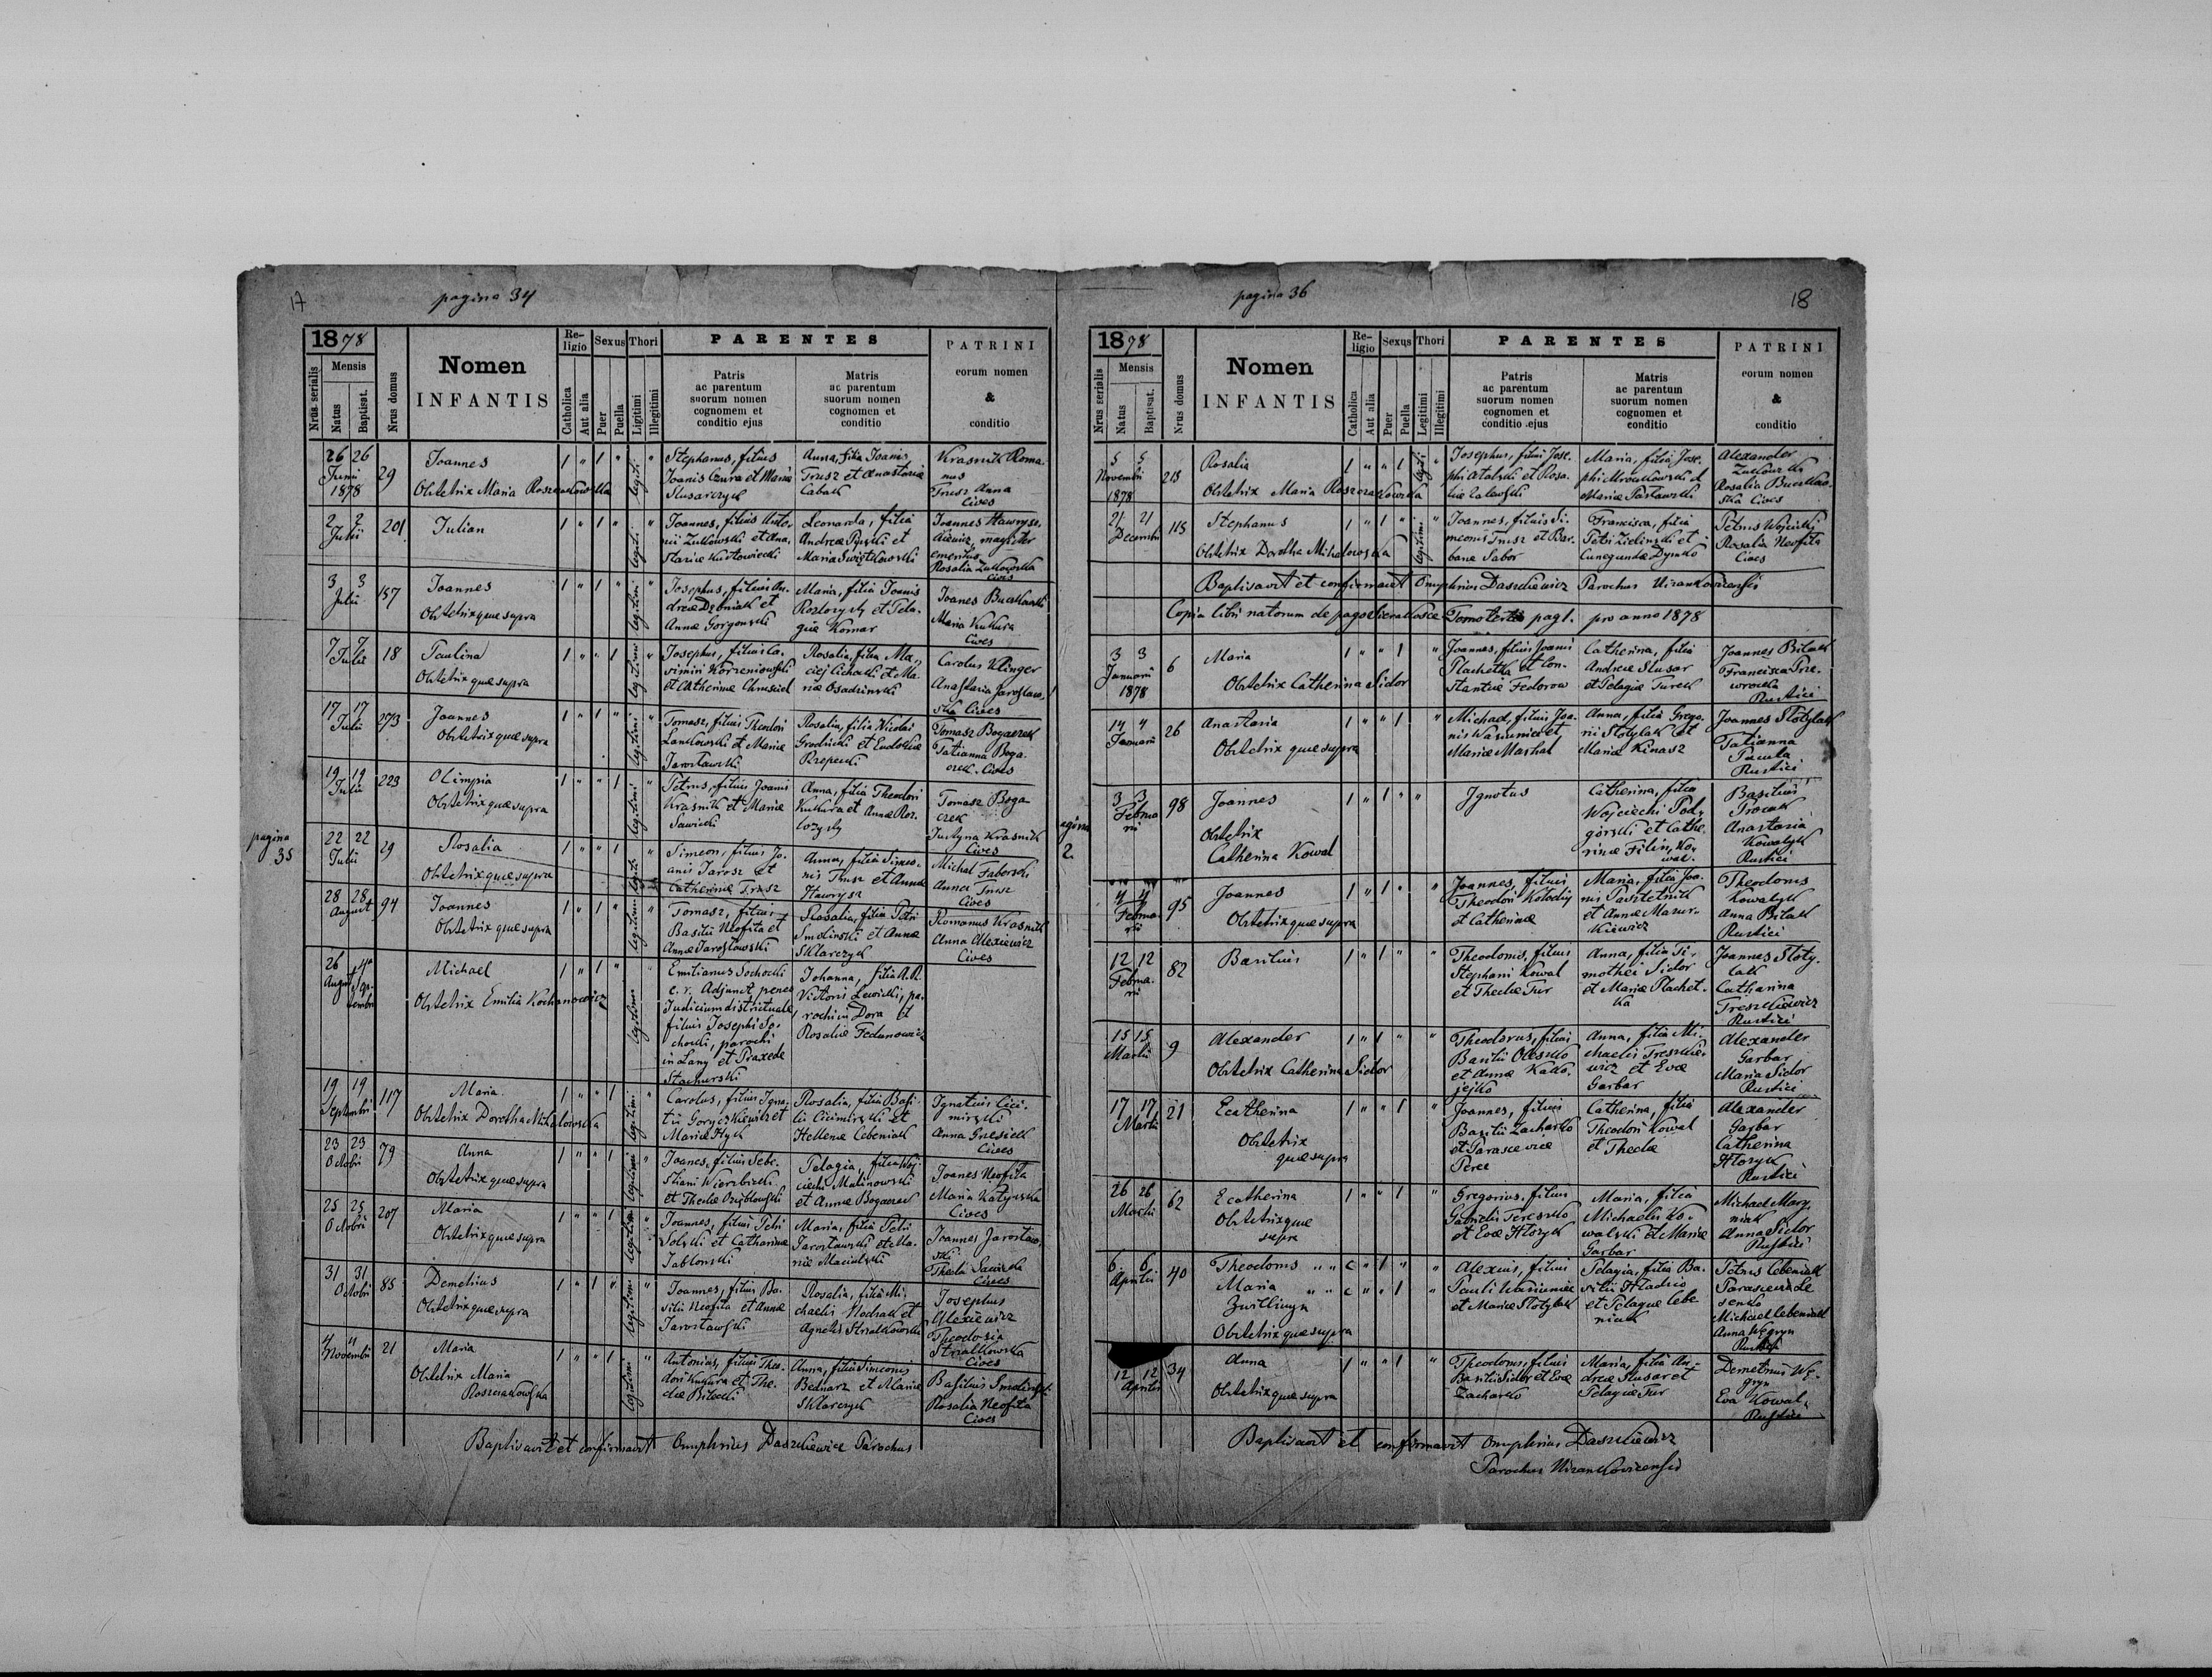 17
pagina 34
1878
Nrus serialis
Mensis
Natus
Baptisat.
Nrus domus
Nomen
INFANTIS
Religio
Catholica
Aut alia
Sexus
Puer
Puella
Thori
Ligitimi
Illegitimi
PARENTES
Patris
ac parentum
suorum nomen
cognomem et
conditio ejus
Matris
ac parentum
suorum nomen
cognomen et
conditio
PATRINI
eorum nomen
&
conditio
26 26
Junii
1878
29
Joannes
Obstetrix Maria Roszczakowska
1 " 1 "
legiti.
Stephanus, filius
Joanis Czura et Mariae
Slusarczyk
Anna, filia Joanis
Trusz et Anastasiae
Cabak
Krasnik Roma-
nus
Trusz Anna
Cives
2 2
Julii
201
Julian
1 " 1 "
legiti.
Joannes, filius Anto-
nii Zulkowski et Ana-
stasiae
Leonarda, filia
Andreae et
Maria
Joannes
magister
emeritus
Rosalia Zulkowska
Cives
3 3
Julii
157
Joannes
Obstetrix quae supra
1 " 1 "
legitimi
Josephus, filius An-
dreae et
Annae Gorgowski
Maria, filia Joanis
et Pela-
giae Komar
Joanes Buczkowski
Maria Kukura
Cives
7 7
Julii
18
Paulina
Obstetrix quae supra
1 " " 1
legitimi
Josephus, filius Ca-
simiri Korzeniowski
et Catherinae Chmiciel
Rosalia, filia Ma-
ciej Cichocki et Ma-
riae Osadzinski
Carolus Klinger
Anastasia Jaroslaw-
ska Cives
17 17
Julii
273
Joannes
Obstetrix quae supra
1 " 1 "
legitimi
Tomasz, filius Theodori
Lankowski et Mariae
Jaroslawski
Rosalia, filia Nicolai
Grodnicki et Eudokiae
Rzepecki
Tomasz Bogaczek
Tatianna Boga-
czek. Cives
19 19
Julii
223
Olimpia
Obstetrix quae supra
1 " " 1
legitimi
Petrus, filius Joanis
Krasnik et Mariae
Sawicki
Anna, filia Theodori
Kukura et Annae Roz-
Tomasz Boga
czek
Justyna Krasnik
Cives
pagina
35
22 22
Julii
29
Rosalia
Obstetrix quae supra
1 " " 1
legiti.
Simeon, filius Jo-
anis Jarosz et
Catherinae Trusz
Anna, filia Simeo-
nis Trusz et Annae
Hawrysz
Michal Faberski
Anna Trusz
Cives
28 28
August
94
Joannes
Obstetrix quae supra
1 " 1 "
legitimi
Tomasz, filius
Basilii Neofita et
Annae Jaroslowski
Rosalia, filia Petri
Smolinski et Annae
Sklarczyk
Romanus Krasnik
Anna Alexiewicz
Cives
26
August
Septembri
Michael
Obstetrix Emilia Kochanowicz
1 " 1 "
legitimi
Emilianus Sochocki
c. r. Adjunct penes
Judicium districtuale,
filius Josephi So-
chocki, parochi
in Lany et Praxede
Stachurski
Johanna, filia R.R.
Victoris Lewicki, pa-
rochi in Dora et
Rosaliae Fedunowicz
19 19
Septembri
117
Maria
Obstetrix Dorotha Michalowska
1 " " 1
legitimi
Carolus, filius Igna-
tii Goryczkiewicz et
Mariae Hyck
Rosalia, filia Basi-
lii Cicimirski et
Hellenae Cebeniak
Ignatius Cici-
mirski
Anna Gresiek
Cives
23 23
Octobri
79
Anna
Obstetrix quae supra
1 " " 1
legitimi
Joanes, filius Seba-
stiani Wierzbicki
et Theclae
Pelagia, filia Woj-
ciechi Malinowski
et Annae Bogaczek
Joanes Neofita
Maria
Cives
25 25
Octobri
207
Maria
Obstetrix quae supra
1 " " 1
legitimi
Joannes, filius Petri
Solski et Catharinae
Jablonski
Maria, filia Petri
Jaroslawski et Ma-
riae
Joannes Jaroslaw-
ski
Thecla Sawicka
Cives
31 31
Octobri
85
Demetrius
Obstetrix quae supra
1 " 1 "
legitimi
Joannes, filius Ba-
silii Neofita et Annae
Jaroslawski
Rosalia, filia Mi-
chaelis et
Agnetis Strzalkowski
Josephus
Alexiewicz
Theodosia
Strzalkowska
Cives
4 4
Novembri
21
Maria
Obstetrix Maria
Roszczakowska
1 " " 1
legitimi
Antonius, filius Theo-
dori Kukura et The-
clae Bilecki
Anna, filia Simeonis
Bednarz et Mariae
Sklarczyk
Basilius Smolinski
Rosalia Neofita
Cives
Baptisavit et confirmavit Onuphrius Daszkiewicz Parochus
pagina 36
18
1878
Nrus serialis
Mensis
Natus
Baptisat.
Nrus domus
Nomen
INFANTIS
Religio
Catholica
Aut alia
Sexus
Puer
Puella
Thori
Legitimi
Illegitimi
PARENTES
Patris
ac parentum
suorum nomen
cognomen et
conditio ejus
Matris
ac parentum
suorum nomen
cognomen et
conditio
PATRINI
eorum nomen
&
conditio
5 5
Novembri
1878
213
Rosalia
Obstetrix Maria Roszczakowska
1 " " 1
legiti
Josephus, filius Jose-
phi et Rosa-
liae Zalewski
Maria, filia Jose-
phi Mroczkowski et
Mariae
Alexander
Zulkowski
Rosalia Buczkow-
ska Cives
21 21
Decembri
115
Stephanus
Obstetrix Dorotha Michalowska
1 " 1 "
legitimi
Joannes, filius Si-
meonis Trusz et Bar-
barae Sabor
Francisca, filia
Petri Zielinski et
Cunegundae Dymko
Petrus Wojcicki
Rosalia Neofita
Cives
Baptisavit et confirmavit Onuphrius Daszkiewicz Parochus Nizankovicensis
Copia libri natorum de pago Sierakosce Tomo tertio pag 1. pro anno 1878
3 3
Januarii
1878
6
Maria
Obstetrix Catherina Sidor
1 " " 1 "
Joannes, filius Joanis
Plachetka et Con-
stantiae Fedorow
Catherina, filia
Andreae Slusar
et Pelagiae Turek
Joannes Bilak
Francisca Prze-
worcka
Rustici
14 4
Januarii
26
Anastasia
Obstetrix quae supra
1 " " 1 "
Michael, filius Joa-
nis Waniunia et
Mariae Marhal
Anna, filia Grego-
rii Slotylak et
Mariae Kinasz
Joannes Slotylak
Tatianna
Pacula
Rustici
agina
2.
3 3
Februa
rii
98
Joannes
Obstetrix
Catherina Kowal
1 " 1 " "
Ignotus
Catherina, filia
Wojciechi Pod-
górski et Cathe-
rinae Filin, Ko-
wal.
Basilius
Procak
Anastasia
Kowalyk
Rustici
4 4
Februa-
rii
95
Joannes
Obstetrix quae supra
1 " 1 " "
Joannes, filius
Theodori Kolodij
et Catherinae
Maria, filia Joa-
nis Pasztetnik
et Annae Mazur-
kiewicz
Theodorus
Kowalyk
Anna Bilak
Rustici
12 12
Februa-
rii
82
Basilius
1 " 1 " "
Theodorus, filius
Stephani Kowal
et Theclae Tur
Anna, filia Ti-
mothei Sidor
et Mariae Plachet-
ka
Joannes Sloty-
lak
Catharina
Treszkiewicz
Rustici
15 15
Martii
9
Alexander
Obstetrix Catherina Sidor
1 " 1 " "
Theodorus, filius
Basilii Oleszko
et Annae Kalo-
jejko
Anna, filia Mi-
chaelis Treszkie-
wicz et Evae
Garbar
Alexander
Garbar
Maria Sidor
Rustici
17 17
Martii
21
Ecatherina
Obstetrix
quae supra
1 " " 1 "
Joannes, filius
Basilii Zacharko
et Parascevice
Perec
Catherina, filia
Theodori Kowal
et Theclae
Alexander
Garbar
Catherina
Hlozyk
Rustici
26 26
Martii
62
Ecatherina
Obstetrix quae
supra
1 " " 1 "
Gregorius, filius
Gabrielis Tereszko
et Evae Hlozyk
Maria, filia
Michaelis Ko-
walski et Mariae
Garbar
Michael Mary-
niak
Anna Sidor
Rustici
6 6
Aprilis
40
Theodorus " " c " 1 " "
Maria " " c " " 1 "
Zwillinge
Obstetrix quae supra
Alexius, filius
Pauli Waniuniec
et Mariae Slotylak
Pelagia, filia Ba-
silii Hladio
et Pelagiae Cebe
niak
Petrus Cebeniak
Parascevia Le
senko
Michael Cebeniak
Anna Węgryn
Rustici
12 12
Aprilis
34
Anna
Obstetrix quae supra
1 " " 1 "
Theodorus, filius
Basilii Sidor et Evae
Zacharko
Maria, filia An-
dreae Slusar et
Pelagiae Tur
Demetrius Wę-
gryn
Eva Kowal
Rustici
Baptisavit et confirmavit Onuphrius Daszkiewicz
Parochus Nizankovicensis